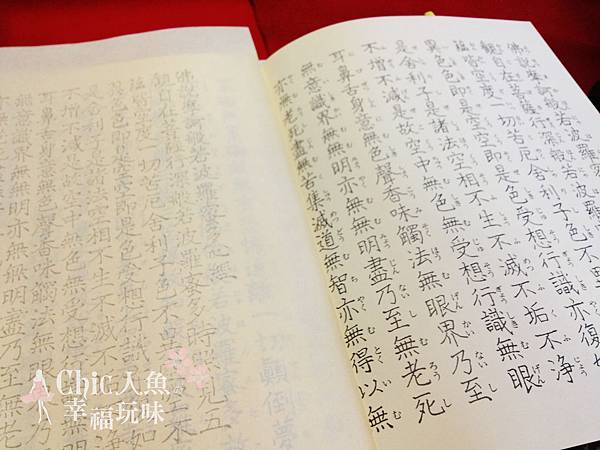 佛説摩訶般若波羅
觀自在菩薩行深般若波羅
蘊皆空度一切苦厄舎利子色不異
異色色即是空空即是色受想行識亦復
是舎利子是諸法空相不生不滅不垢不浄
不増不減是故空中無色無受想行識無眼
耳鼻舌身意無色聲香味觸法無眼界乃至
無意識界無無明亦無無明盡乃至無老死
亦無老死盡無苦集滅道無智亦無得以無
佛説摩訶般若波羅蜜多心
觀自在菩薩行深般若波羅蜜多時照見五
蘊皆空度一切苦厄舎利子色不異
異色色即是空空即是色受想行識如
是舎利子是諸法空相不生不滅不浄
不増不減是故空中無色無受想行
耳鼻舌身無聲香味觸法無眼
無意識界無無明亦無無明盡乃至無老
Chic人魚
幸福玩味